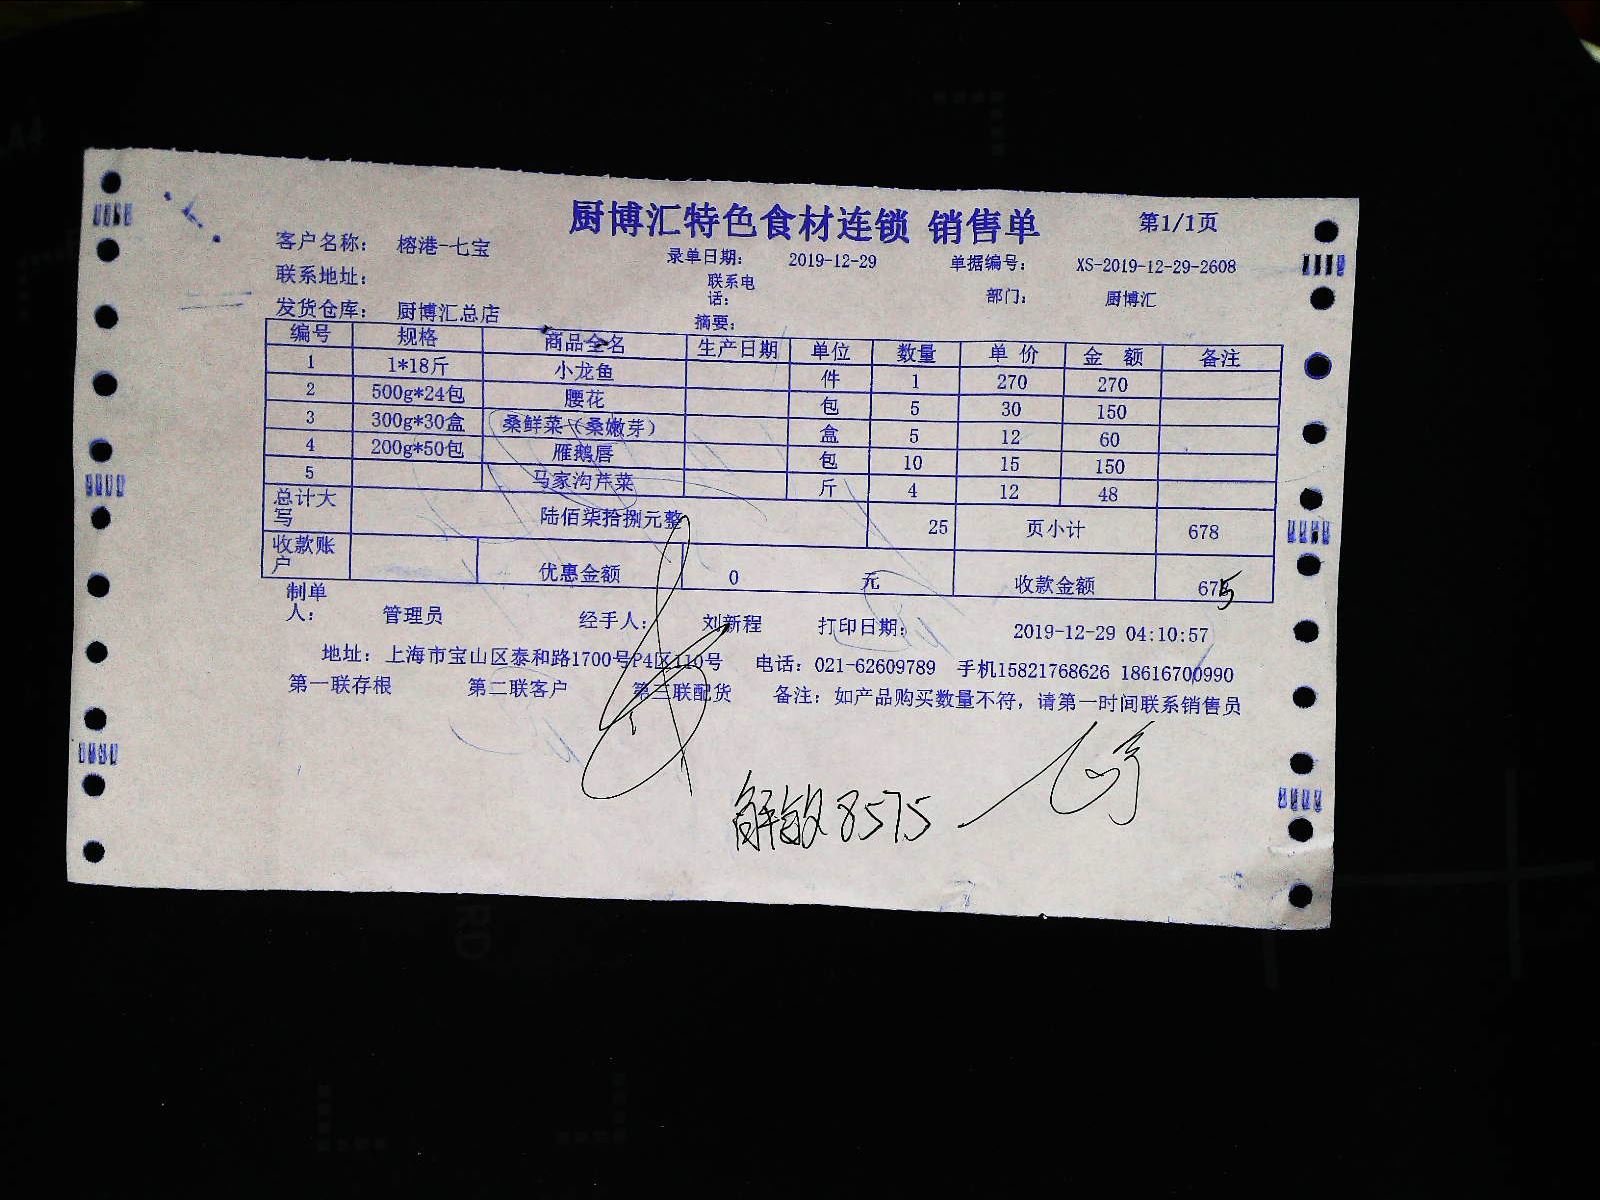 厨博汇特色食材连锁 销售单 第1/1页
客户名称: 榕港-七宝 录单日期: 2019-12-29 单据编号: XS-2019-12-29-2608
联系地址: 联系电话: 部门: 厨博汇
发货仓库: 厨博汇总店 摘要:
编号 规格 商品全名 生产日期 单位 数量 单价 金额 备注
1 1*18斤 小龙鱼 件 1 270 270
2 500g*24包 腰花 包 5 30 150
3 300g*30盒 桑鲜菜(桑嫩芽) 盒 5 12 60
4 200g*50包 雁鹅唇 包 10 15 150
5 马家沟芹菜 斤 4 12 48
总计大写 陆佰柒拾捌元整 25 页小计 678
收款账户 优惠金额 0 元 收款金额 675
制单人: 管理员 经手人: 刘新程 打印日期: 2019-12-29 04:10:57
地址: 上海市宝山区泰和路1700号P4区110号 电话: 021-62609789 手机15821768626 18616700990
第一联存根 第二联客户 第三联配货 备注: 如产品购买数量不符, 请第一时间联系销售员
8575